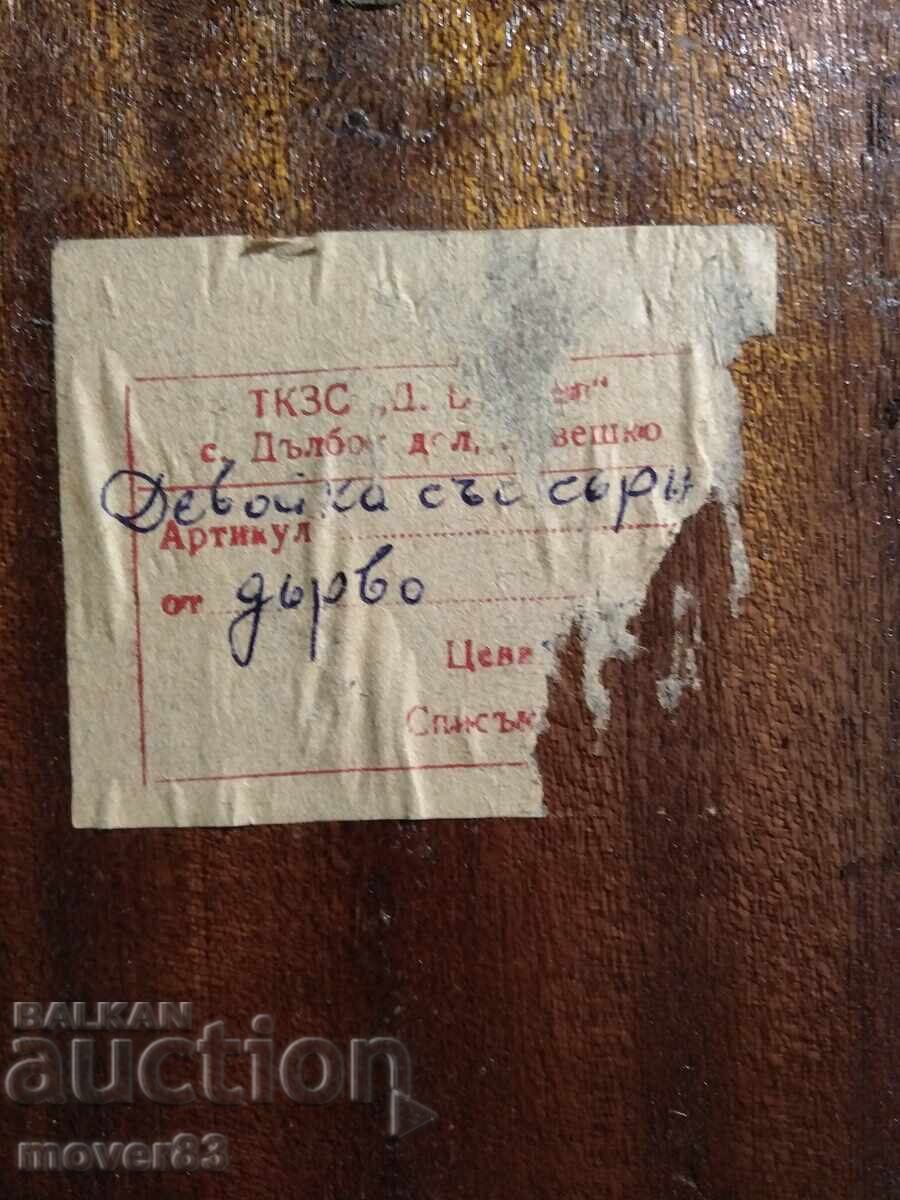 ТКЗС „Д.
с. Дълбок дол,
Девойка със сърни
Артикул
от дърво
Цена
Списък
BALKAN
auction
mover83